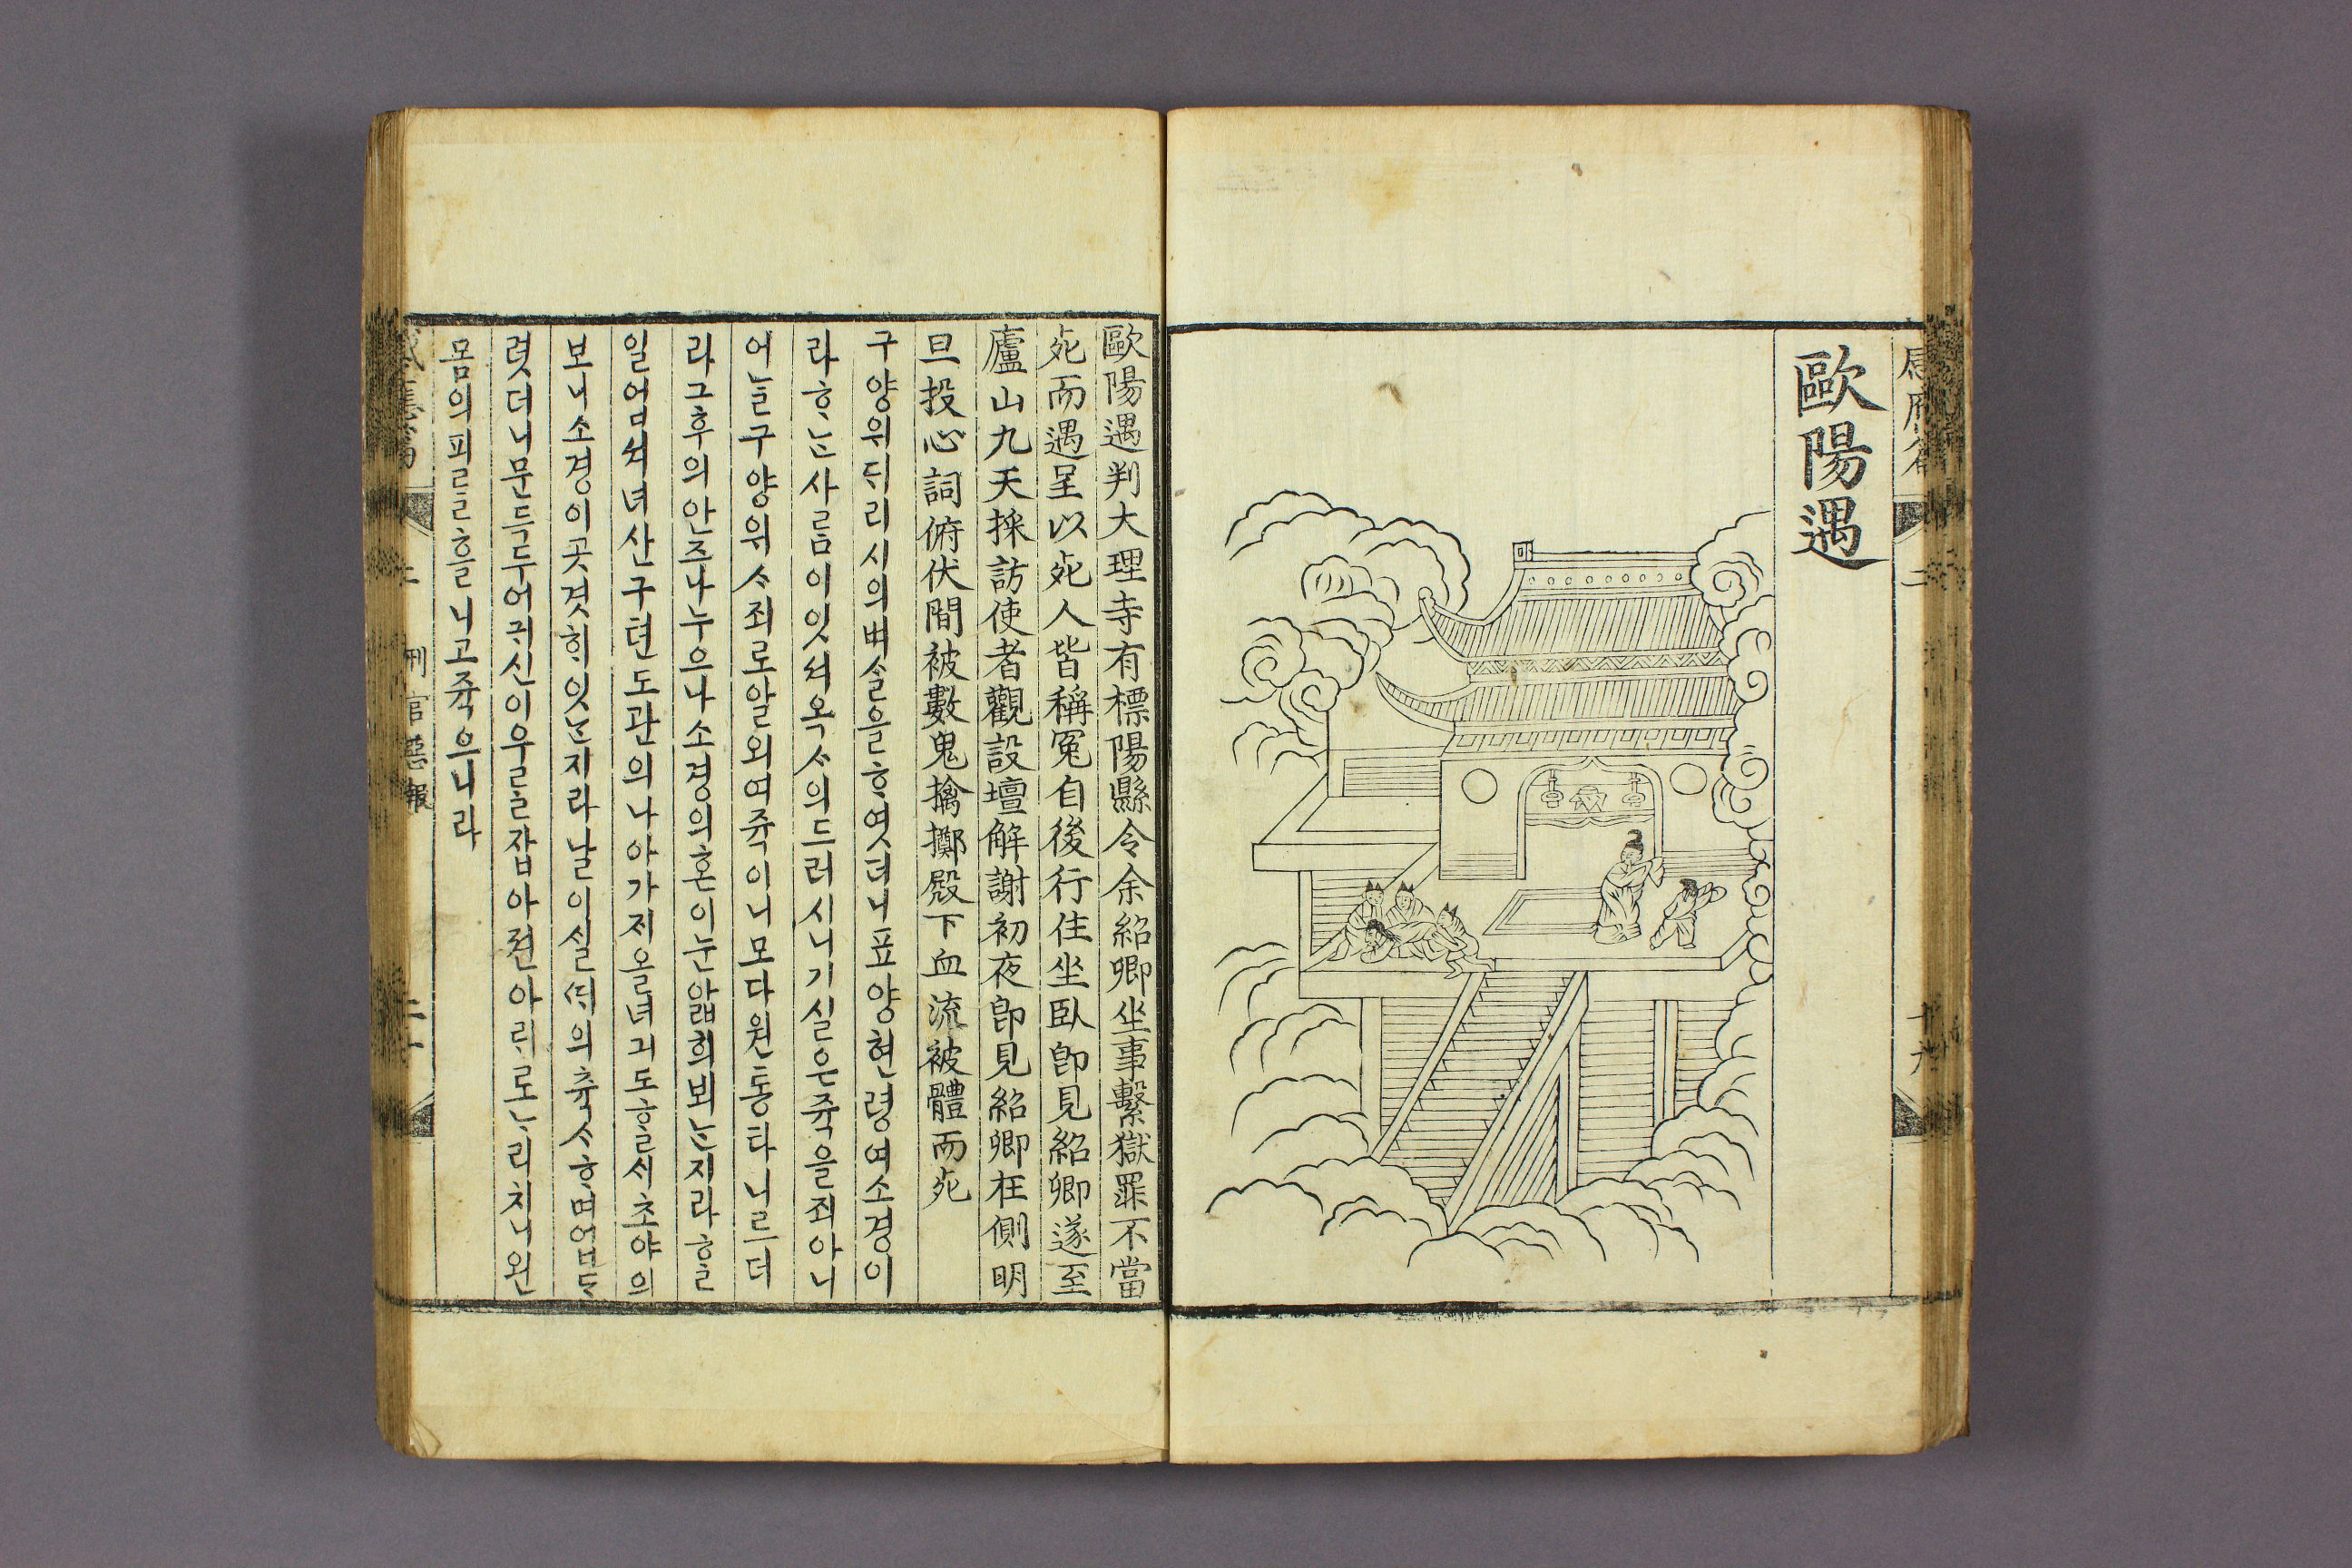 歐陽遇
歐陽遇判大理寺有標陽縣令余紹卿坐事繫獄罪不當
死而遇呈以死人皆稱冤自後行住坐臥卽見紹卿遂至
廬山九天採訪使者觀設壇解謝初夜卽見紹卿在側明
旦投心詞俯伏間被數鬼擒擲殿下血流被體而死
구양위ᄃᆡ리시의벼슬을ᄒᆞ엿더니표양현령여소경이
라ᄒᆞᄂᆞᆫ사ᄅᆞᆷ이잇셔옥ᄉᆞ의드러시니기실은쥭을죄아니
어ᄂᆞᆯ구양위ᄉᆞ죄로알외여쥭이니모다원통타니르더
라그후의안즈나누으나소경의혼이눈압희뵈ᄂᆞᆫ지라ᄒᆞᆯ
일업셔녀산구텬도관의나아가졔올녀긔도ᄒᆞᆯ세초야의
보니소경이곳겻ᄒᆡ잇ᄂᆞᆫ지라날이ᄉᆡᆯᄯᆡ의츅ᄉᆞᄒᆞ며업ᄃᆡ
렷더니문득두어귀신이우ᄅᆞᆯ잡아젼아ᄅᆡ로ᄂᆞ리치니왼
몸의피ᄅᆞᆯ흘니고쥭으니라
二 刑官惡報 二十
二 十九